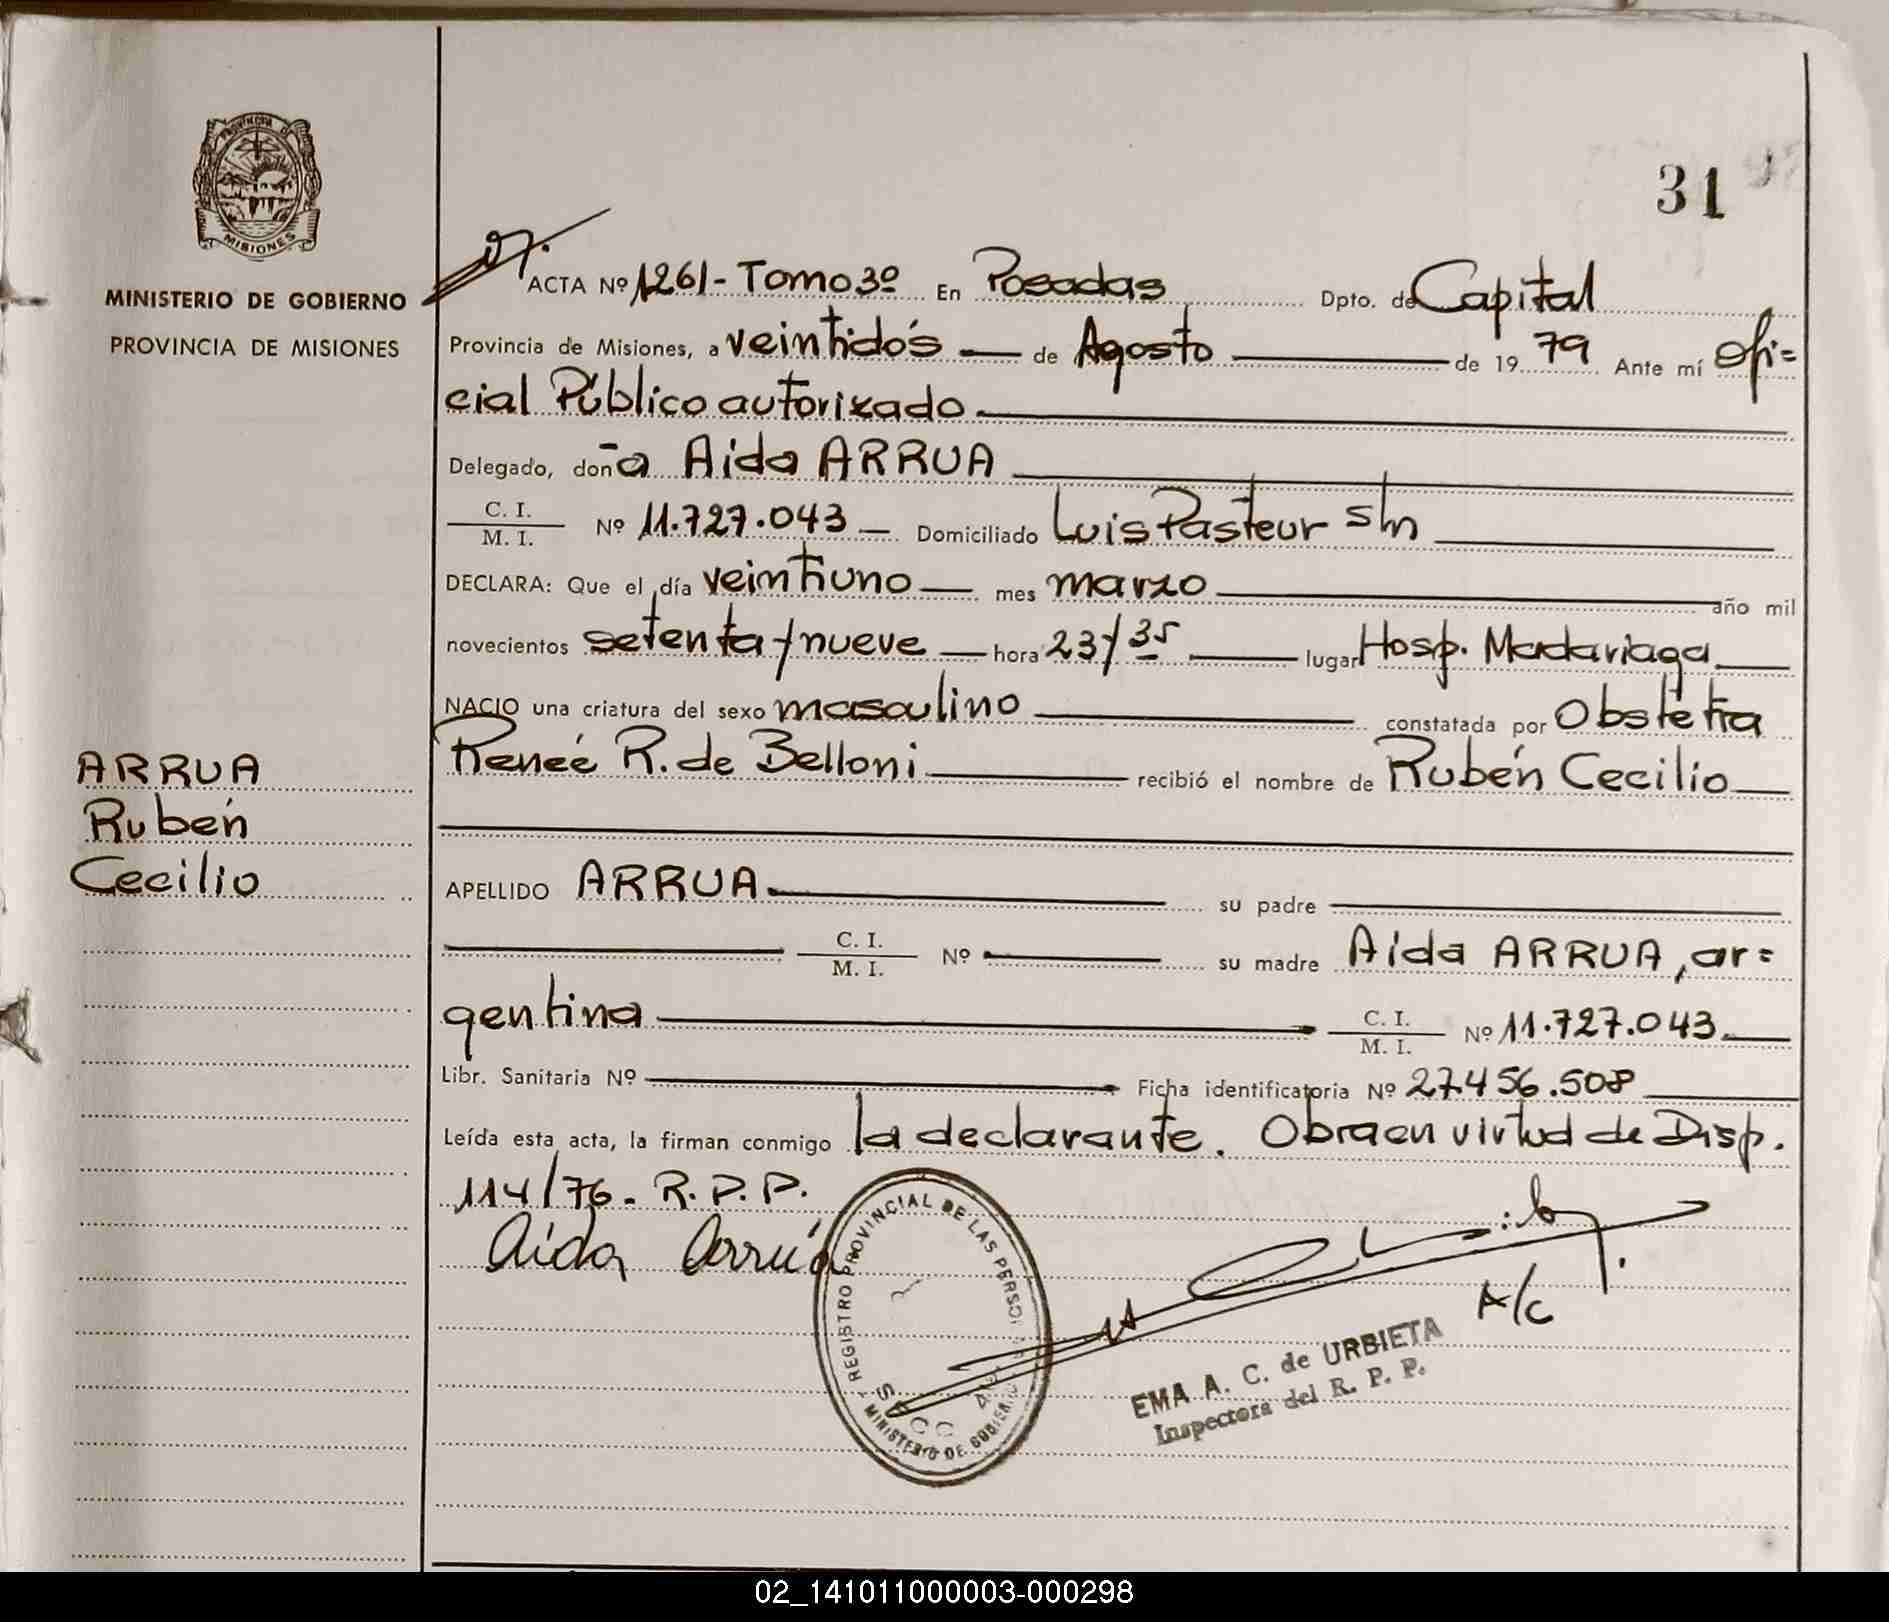 PROVINCIA DE
MISIONES
MINISTERIO DE GOBIERNO
PROVINCIA DE MISIONES
ARRUA
Rubén
Cecilio
31
ACTA Nº 1261 - Tomo 3º En Posadas Dpto. de Capital
Provincia de Misiones, a veintidós de Agosto de 19 79 Ante mí Ofi=
cial Público autorizado
Delegado, doña Aida ARRUA
C. I.
M. I. Nº 11.727.043 Domiciliado Luis Pasteur s/n
DECLARA: Que el día veintiuno mes marzo año mil
novecientos setenta y nueve hora 23/35 lugar Hosp. Madariaga
NACIO una criatura del sexo masculino constatada por Obstetra
Reneé R. de Belloni recibió el nombre de Rubén Cecilio
APELLIDO ARRUA su padre
C. I.
M. I. Nº su madre Aida ARRUA, ar=
gentina C. I.
M. I. Nº 11.727.043
Libr. Sanitaria Nº Ficha identificatoria Nº 27.456.508
Leída esta acta, la firman conmigo la declarante. Obra en virtud de Disp.
114/76 - R.P.P.
Aida Arrúa
REGISTRO PROVINCIAL DE LAS PERSO
MINISTERIO DE GOBIER
A/c
EMA A. C. de URBIETA
Inspectora del R. P. P.
02_141011000003-000298